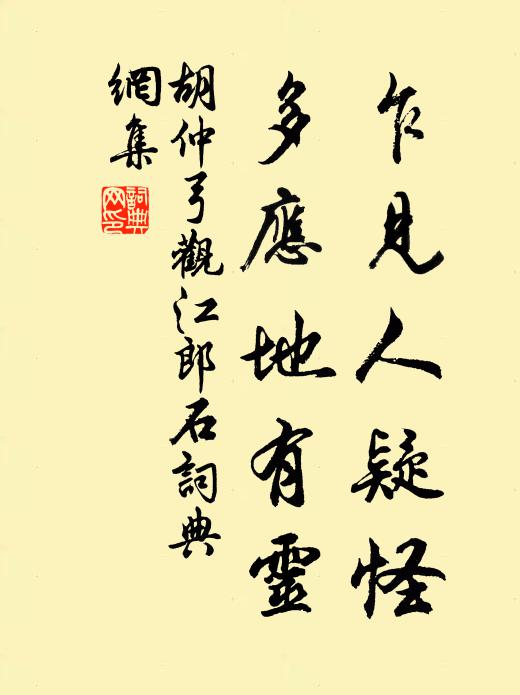 乍見人疑怪
多應地有靈
胡仲弓觀江郎石詞典
網集
詞典
網印